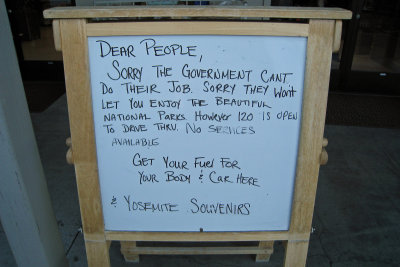 DEAR PEOPLE,
SORRY THE GOVERNMENT CANT
DO THEIR JOB. SORRY THEY WONT
LET YOU ENJOY THE BEAUTIFUL
NATIONAL PARKS. HOWEVER 120 IS OPEN
TO DRIVE THRU. NO SERVICES
AVAILABLE
GET YOUR FUEL FOR
YOUR BODY & CAR HERE
& YOSEMITE SOUVENIRS